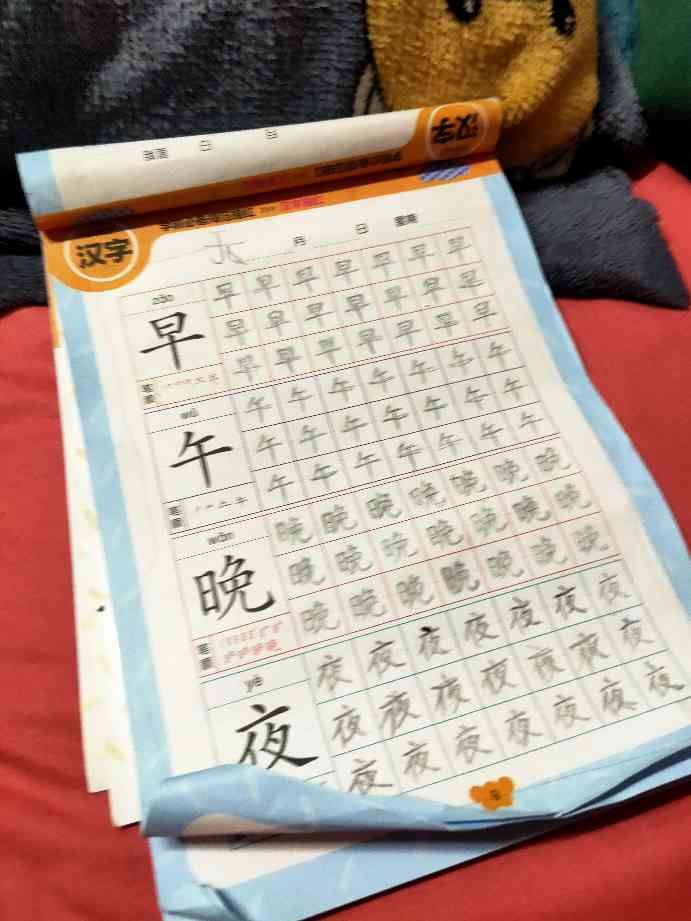 汉字
星期 日 月
汉字
月 日 星期
zǎo
早 早 早 早 早 早 早 早
早 早 早 早 早 早 早
早 早 早 早 早 早 早
笔顺
wǔ
午 午 午 午 午 午 午 午
午 午 午 午 午 午 午
午 午 午 午 午 午 午
笔顺
wǎn
晚 晚 晚 晚 晚 晚 晚 晚
晚 晚 晚 晚 晚 晚 晚
晚 晚 晚 晚 晚 晚 晚
笔顺
yè
夜 夜 夜 夜 夜 夜 夜 夜
夜 夜 夜 夜 夜 夜 夜 夜
夜 夜 夜 夜 夜 夜 夜